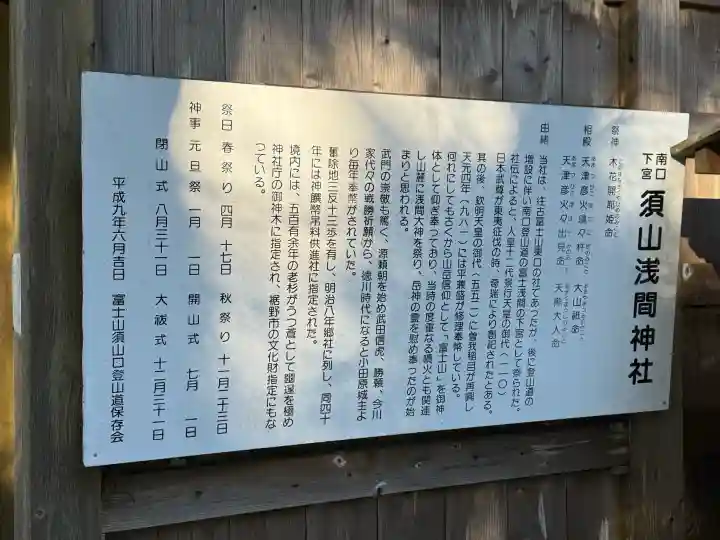 南口
下宮
須山浅間神社
祭神　木花開耶姫命
相殿　天津彦火瓊々杵命　大山祇命
天津彦火々出見命　天熊大人命
由緒　当社は、往古富士山東口の社であったが、後に登山道の
増設に伴い南口登山道の富士浅間の下宮として祭られた。
社伝によると、人皇十二代景行天皇の御代（一一〇）
日本武尊が東夷征伐の時、奇瑞により創記されたとある。
其の後、欽明天皇の御代（五五二）に曽我稲目が再興し
天元四年（九八一）には平兼盛が修理奉幣している。
何れにしても古くから山岳信仰として「富士山」を御神
体として仰ぎ奉っており、当時の度重なる噴火とも関連
し山麓に浅間大神を祭り、岳神の霊を慰め奉ったのが始
まりと思われる。
武門の崇敬も篤く、源頼朝を始め武田信虎、勝頼、今川
家代々の戦勝祈願から、徳川時代になると小田原城主よ
り毎年奉幣がされていた。
舊除地三反十三歩を有し、明治八年郷社に列し、同四十
年には神饌幣帛料供進社に指定された。
境内には、五百有余年の老杉がうつ蒼として幽邃を極め
神社庁の御神木に指定され、裾野市の文化財指定にもな
っている。
祭日　春祭り　四月　十七日　秋祭り　十一月二十三日
神事　元旦祭　一月　一日　開山式　七月　一日
閉山式　八月三十一日　大祓式　十二月三十一日
平成九年六月吉日　富士山須山口登山道保存会